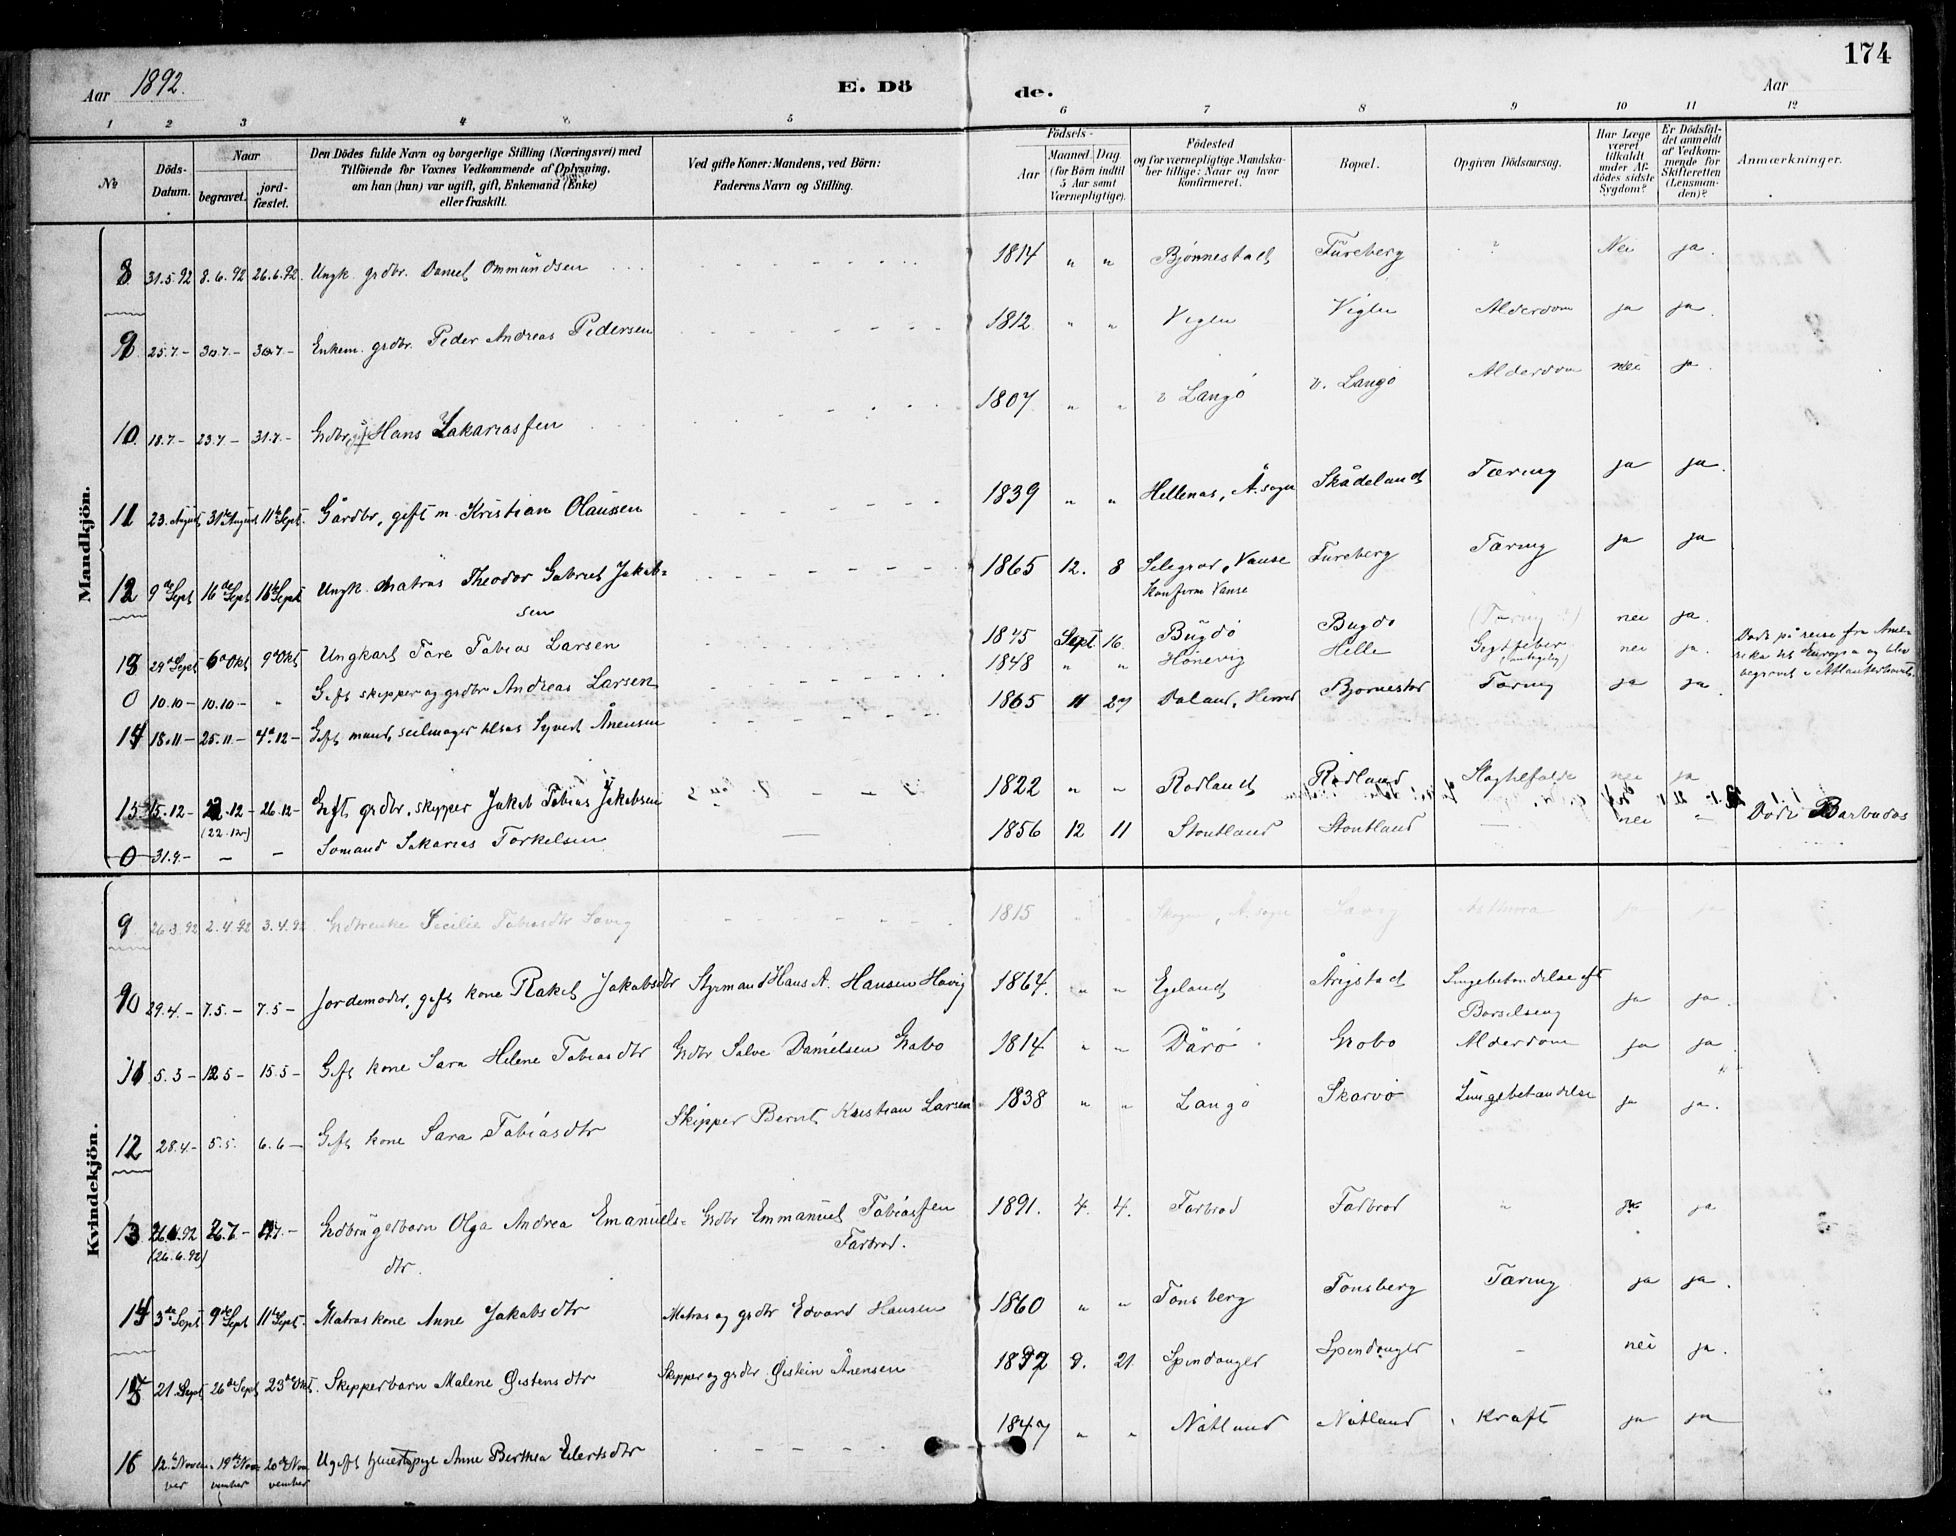 174
Aar 1892.
E. Dö de.
Aar
1 2 3 4 5 6 7 8 9 10 11 12
No
Döds-Datum.
Naar
begravet.
jord-fæstet.
Den Dödes fulde Navn og borgerlige Stilling (Næringsvei) med
Tilföiende for Voxnes Vedkommende af Oplysning,
om han (hun) var ugift, gift, Enkemand (Enke)
eller fraskilt.
Ved gifte Koner: Mandens, ved Börn:
Faderens Navn og Stilling.
Födsels-
Aar
Maaned. Dag
(for Börn indtil
5 Aar samt
Værnepligtige).
Födested
og for værnepligtige Mandska-
ber tillige: Naar og hvor
konfirmeret.
Bopæl.
Opgiven Dödsaarsag.
Har Læge
været
tilkaldt
under Af-
dödes sidste
Sygdom?
Er Dödsfal-
det anmeldt
af Vedkom-
mende for
Skifteretten
(Lensman-
den)?
Anmærkninger.
Mandkjön.
8 31.5.92 8.6.92 26.6.92 Ungk. grdbr. Daniel Ommundsen 1814 " " Bjønnestad Fureberg " Nei ja.
9 25.7- 30.7- 30.7- Enkem. grdbr. Peder Andreas Pedersen 1812 " " Viglu Viglu Alderdom ja ja.
10 18.7- 23.7- 31.7- Grdbr. Hans Zakariassen 1807 " " v Langø v. Langø Alderdom nei ja.
11 23. August 31te August 11te Sept. Gårdbr, gift m. Kristian Olaussen 1839 " " Hellenas, Å. sogn Skådeland Tæring ja ja.
12 9de Sept 16de Sept Sept Ungk. Matros Theodor Gabriel Jakob-
sen 1865 12. 8 Selegrod, Vanse Fureberg Tæring ja ja
Konfirm Vanse
13 29de Sept 6te Okt 9de Okt Ungkarl Tore Tobias Larsen 1875 Sept 16. Bugdø Bugdø (Tæring?) nei ja.
0 10.10- 10.10- " Gift skipper og grdbr Andreas Larsen 1848 " " Hønevig Helle Gigtfeber nei ja.
Døde på reise fra Ame-
rika til Europa og blev
begravet i Atlanterhavet.
14 18.11- 25.11- 4de.12- Gift mand, seilmager Syvert Ånensen 1865 11 27 Daland, Herred Bjørnestad Tæring ja ja.
15 15.12- 22.12- 26.12- Gift grdbr, skipper Jakob Tobias Jakobsen 1822 " " Rødland Rødland Slagtilfælde nei ja
(22.12)
0 31.9- - - Sømand Sakarias Torkelsen 1856 12 11 Stoutland Stoutland - nei " Døde Barbados
Kvindekjön.
9 26.3.92 2.4.92 3.4.92 Grdbrenke Cecilie Tobiasdtr Savig 1815 " " Skogen, Å. sogn Savig Asthma ja ja
10 29.4.- 7.5.- 7.5- Jordemoder, gift kone Rakel Jakobsdtr Styrmand Hans A. Hansen Høvig 1864. " " Egeland Årigstad Lungebetændelse eft
Barselseng ja ja.
11 5.3- 12.5- 15.5- Gift kone Sara Helene Tobiasdtr Grdbr Salve Danielsen Grobo 1814 " " Dårø Grobo Alderdom ja ja.
12 28.4- 5.5. 6.6- Gift kone Sara Tobiasdtr Skipper Bernt Kristian Larsen 1838 " " Langø Skarvø Lungebetændelse ja ja.
13 26.6.92 2.7- Grdbrugerbarn Olga Andrea Emanuels-
dtr. Grdbr Emmanuel Tobiassen
Farbrod. 1891. 4. 4. Farbrod Farbrod " ja ja
(26.6.92)
14 3de Sept 9de Sept 11te Sept. Matroskone Anne Jakobsdtr Matros og grdbr Edvard Hansen 1860 " " Tonsberg Tonsberg Tæring ja ja.
15 21. Sept 26de Sept 23de Okt. Skipperbarn Malene Øistensdtr Skipper og grdbr. Øistein Ånensen 1892 9. 21 Spindanger Spindanger - nei ja.
16 12te Novem-
ber 19de No-
vember 20de No-
vember Ugift Anne Berthea Eilertsdtr 1847 " " Nåtland Nåtland Kræft ja ja